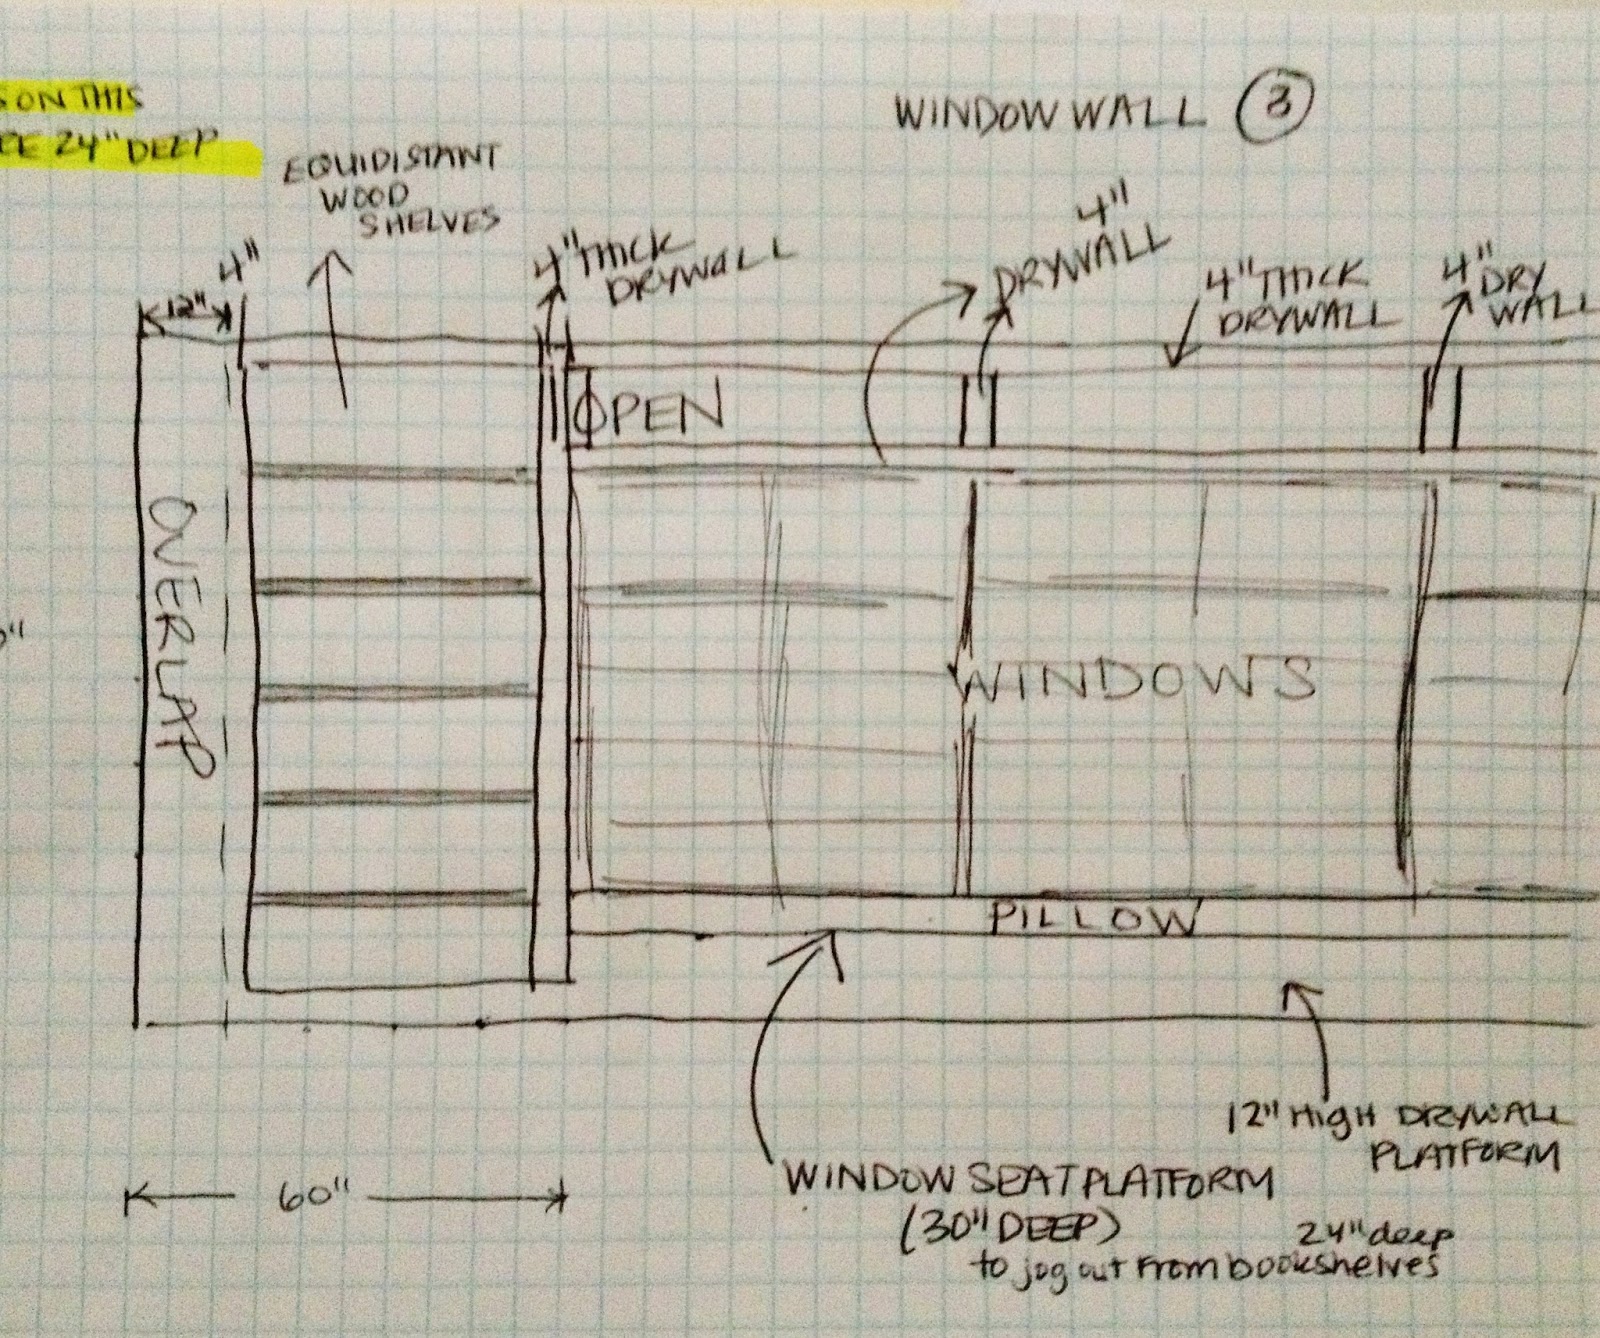 WINDOW WALL 3
ON THIS
24" DEEP
EQUIDISTANT
WOOD
SHELVES
4"
12"
4" THICK
DRYWALL
4"
DRYWALL
4" THICK
DRYWALL
4" DRY
WALL
OPEN
OVERLAP
WINDOWS
PILLOW
12" HIGH DRYWALL
PLATFORM
60"
WINDOW SEAT PLATFORM
(30" DEEP)
24" deep
to jog out from bookshelves